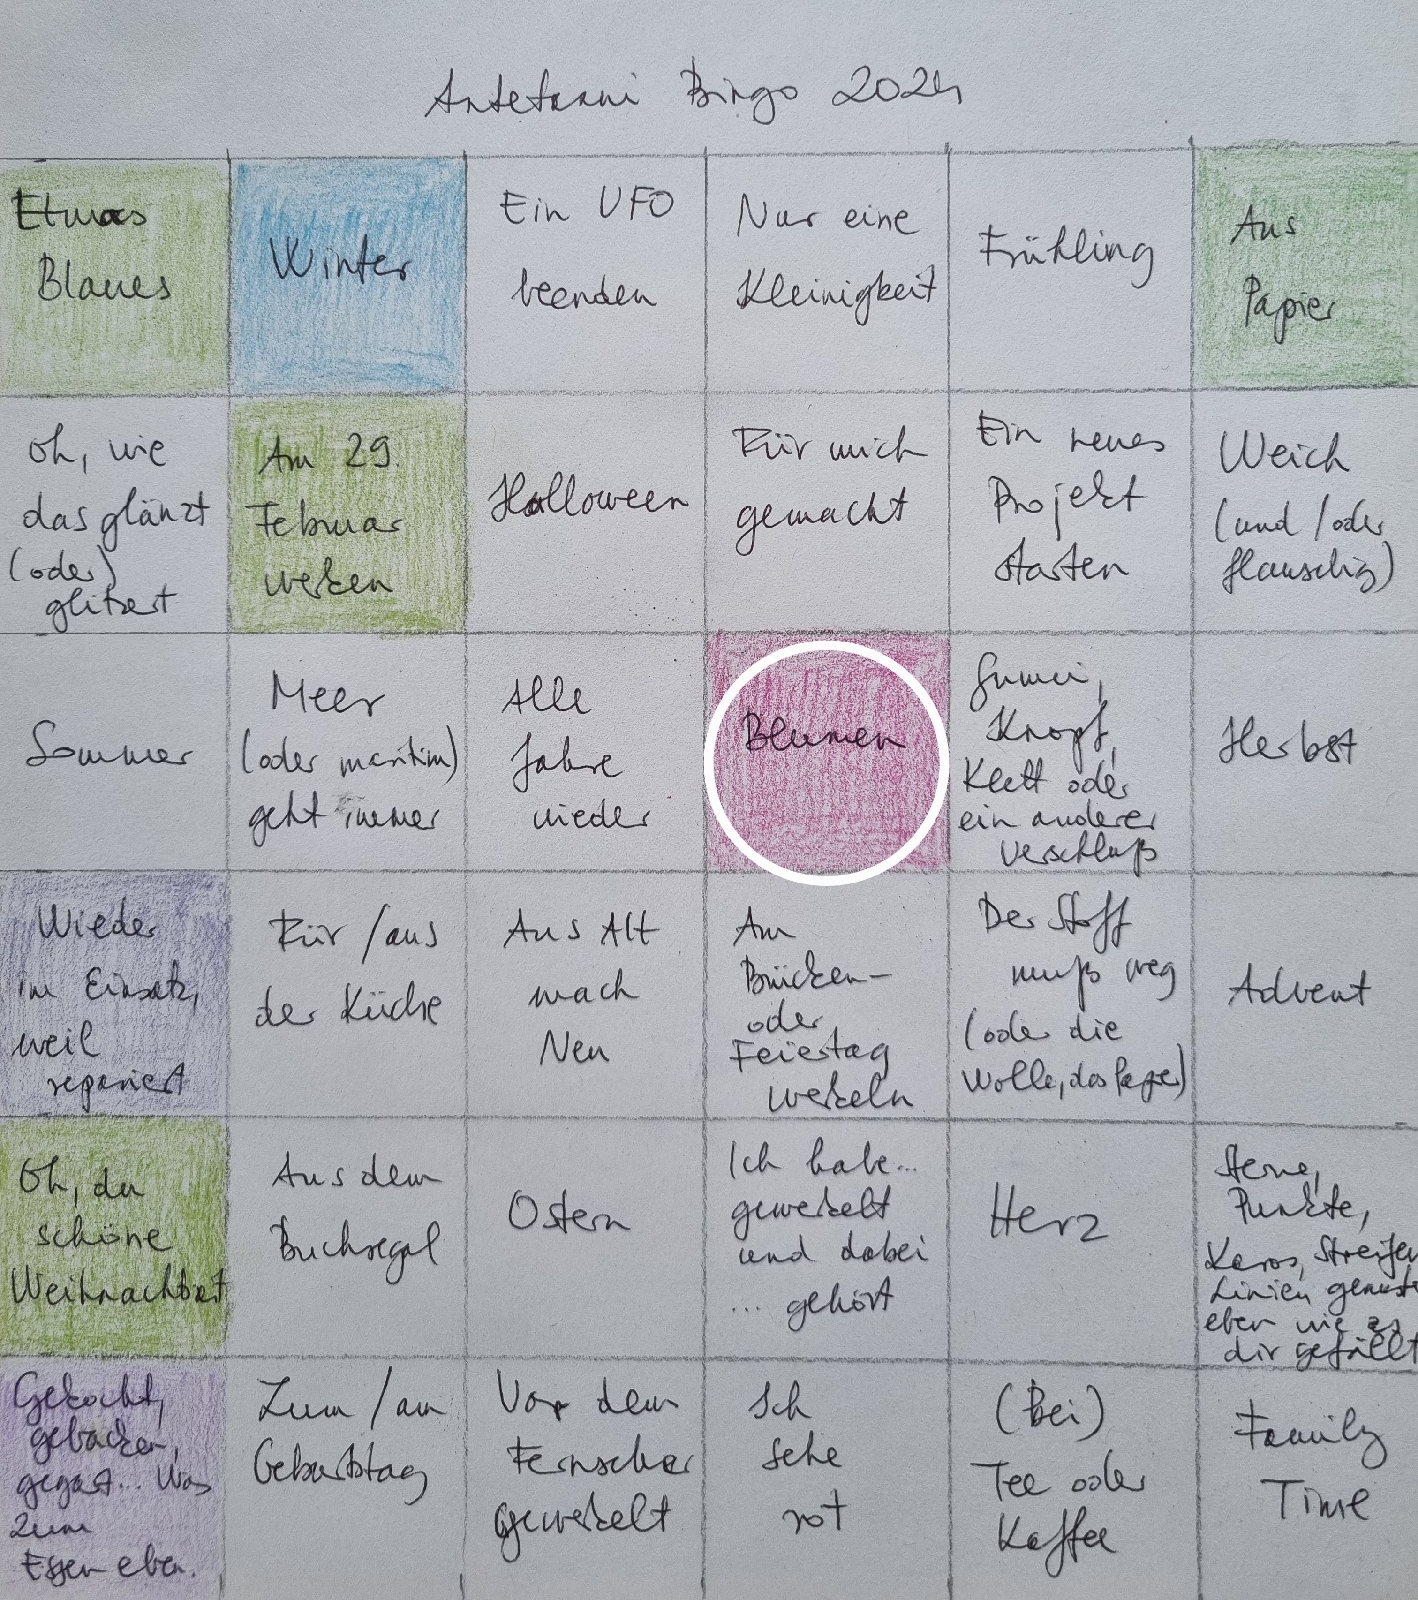 Antetanni Bingo 2024
Etwas
Blaues
Winter
Ein UFO
beenden
Nur eine
Kleinigkeit
Frühling
Aus
Papier
Oh, wie
das glänzt
(oder)
glitzert
Am 29.
Februar
werken
Halloween
Für mich
gemacht
Ein neues
Projekt
starten
Weich
(und/oder
flauschig)
Sommer
Meer
(oder maritim)
geht immer
Alle
Jahre
wieder
Blumen
Gummi,
Knopf,
Klett oder
ein anderer
Verschluß
Herbst
Wieder
im Einsatz,
weil
repariert
Für/aus
der Küche
Aus Alt
mach
Neu
Am
Brücken-
oder
Feiertag
werkeln
Der Stoff
muß weg
(oder die
Wolle, das Papier)
Advent
Oh, du
schöne
Weihnachtszeit
Aus dem
Buchregal
Ostern
Ich habe...
gewerkelt
und dabei
... gehört
Herz
Sterne,
Punkte,
Karos, Streifen
Linien
eben wie es
dir gefällt
Gekocht,
gebacken,
gegart... Was
zum
Essen eben.
Zum/am
Geburtstag
Vor dem
Fernseher
gewerkelt
Ich
sehe
rot
(Bei)
Tee oder
Kaffee
Family
Time